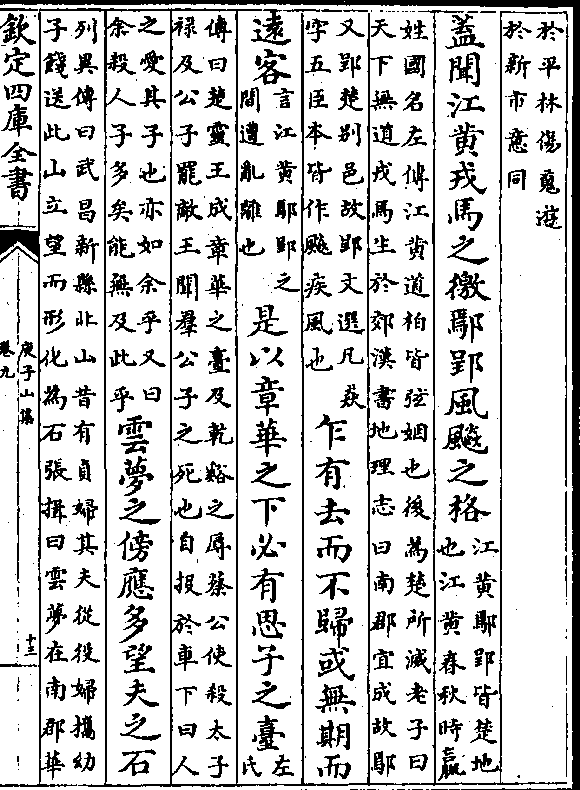 於平林傷魂遊
於新市意同
蓋聞江黃戎馬之徼鄢郢風飈之格
江黃鄢郢皆楚地
也江黃春秋時嬴
姓國名左傳江黃道柏皆弦姻也後為楚所滅老子曰
天下無道戎馬生於郊漢書地理志曰南郡宜成故鄢
又郢楚别邑故郢文選凡猋
字五臣本皆作飈疾風也
乍有去而不歸或無期而
遠客
言江黃鄢郢之
間遭亂離也
是以章華之下必有思子之臺
左
氏
傳曰楚靈王成章華之臺及乾谿之辱蔡公使殺太子
祿及公子罷敵王聞羣公子之死也自投於車下曰人
之愛其子也亦如余乎又曰
余殺人子多矣能無及此乎
雲夢之傍應多望夫之石
列異傳曰武昌新縣北山昔有貞婦其夫從役婦攜幼
子餞送此山立望而形化為石張揖曰雲夢在南郡華
欽定四庫全書
庾子山集
卷九
十三